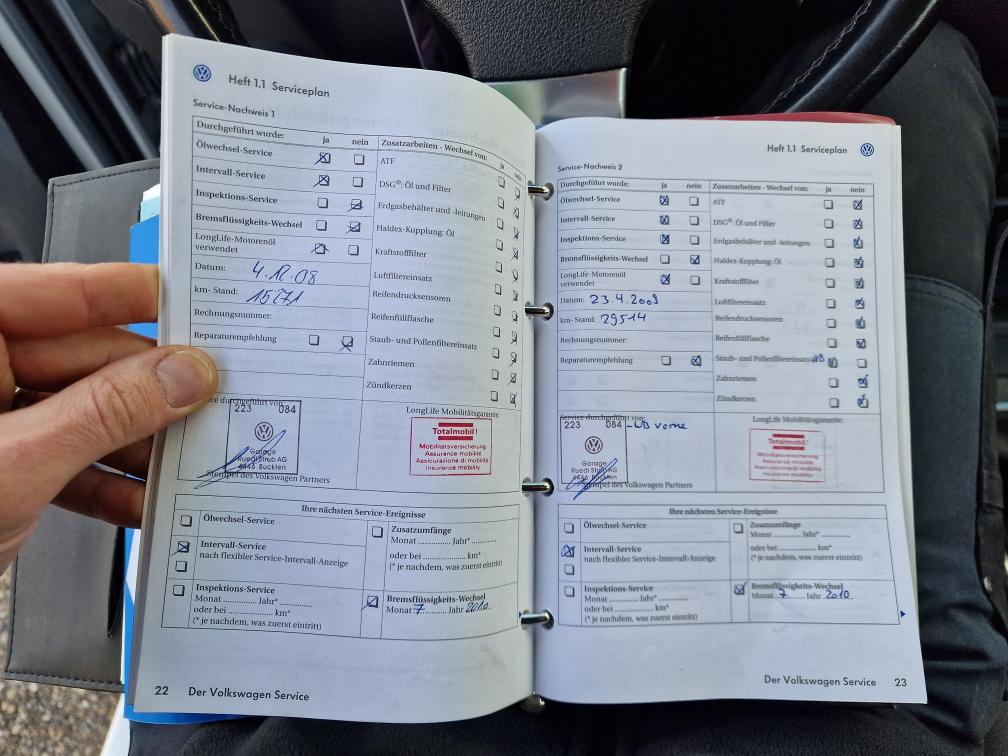 Heft 1.1 Serviceplan
Service-Nachweis 1
Durchgeführt wurde: ja nein
Ölwechsel-Service
Intervall-Service
Inspektions-Service
Bremsflüssigkeits-Wechsel
LongLife-Motorenöl
verwendet
Datum: 4.12.08
km- Stand: 15271
Rechnungsnummer:
Reparaturempfehlung
Zusatzarbeiten - Wechsel von: ja nein
ATF
DSG®: Öl und Filter
Erdgasbehälter und -leitungen
Haldex-Kupplung: Öl
Kraftstofffilter
Luftfiltereinsatz
Reifendrucksensoren
Reifenfüllflasche
Staub- und Pollenfiltereinsatz
Zahnriemen
Zündkerzen
durchgeführt von:
223 084
Garage
Ruedi Strub AG
4446 Buckten
Stempel des Volkswagen Partners
LongLife Mobilitätsgarantie
Totalmobil!
Mobilitätsversicherung
Assurance mobilité
Assicurazione di mobilità
Insurance mobility
Ihre nächsten Service-Ereignisse
Ölwechsel-Service
Intervall-Service
nach flexibler Service-Intervall-Anzeige
Inspektions-Service
Monat .......... Jahr* ..........
oder bei .................... km*
(* je nachdem, was zuerst eintritt)
Zusatzumfänge
Monat .......... Jahr* ..........
oder bei .................... km*
(* je nachdem, was zuerst eintritt)
Bremsflüssigkeits-Wechsel
Monat 7 Jahr 2010
22 Der Volkswagen Service
Heft 1.1 Serviceplan
Service-Nachweis 2
Durchgeführt wurde: ja nein
Ölwechsel-Service
Intervall-Service
Inspektions-Service
Bremsflüssigkeits-Wechsel
LongLife-Motorenöl
verwendet
Datum: 23.4.2009
km- Stand: 29514
Rechnungsnummer:
Reparaturempfehlung
Zusatzarbeiten - Wechsel von: ja nein
ATF
DSG®: Öl und Filter
Erdgasbehälter und -leitungen
Haldex-Kupplung: Öl
Kraftstofffilter
Luftfiltereinsatz
Reifendrucksensoren
Reifenfüllflasche
Staub- und Pollenfiltereinsatz
Zahnriemen
Zündkerzen
Service durchgeführt von:
223 084
Garage
Ruedi Strub AG
4446 Buckten
Stempel des Volkswagen Partners
LongLife Mobilitätsgarantie
Totalmobil!
Mobilitätsversicherung
Assurance mobilité
Assicurazione di mobilità
Insurance mobility
Ihre nächsten Service-Ereignisse
Ölwechsel-Service
Intervall-Service
nach flexibler Service-Intervall-Anzeige
Inspektions-Service
Monat .......... Jahr* ..........
oder bei .................... km*
(* je nachdem, was zuerst eintritt)
Zusatzumfänge
Monat .......... Jahr* ..........
oder bei .................... km*
(* je nachdem, was zuerst eintritt)
Bremsflüssigkeits-Wechsel
Monat 7 Jahr 2010
Der Volkswagen Service 23